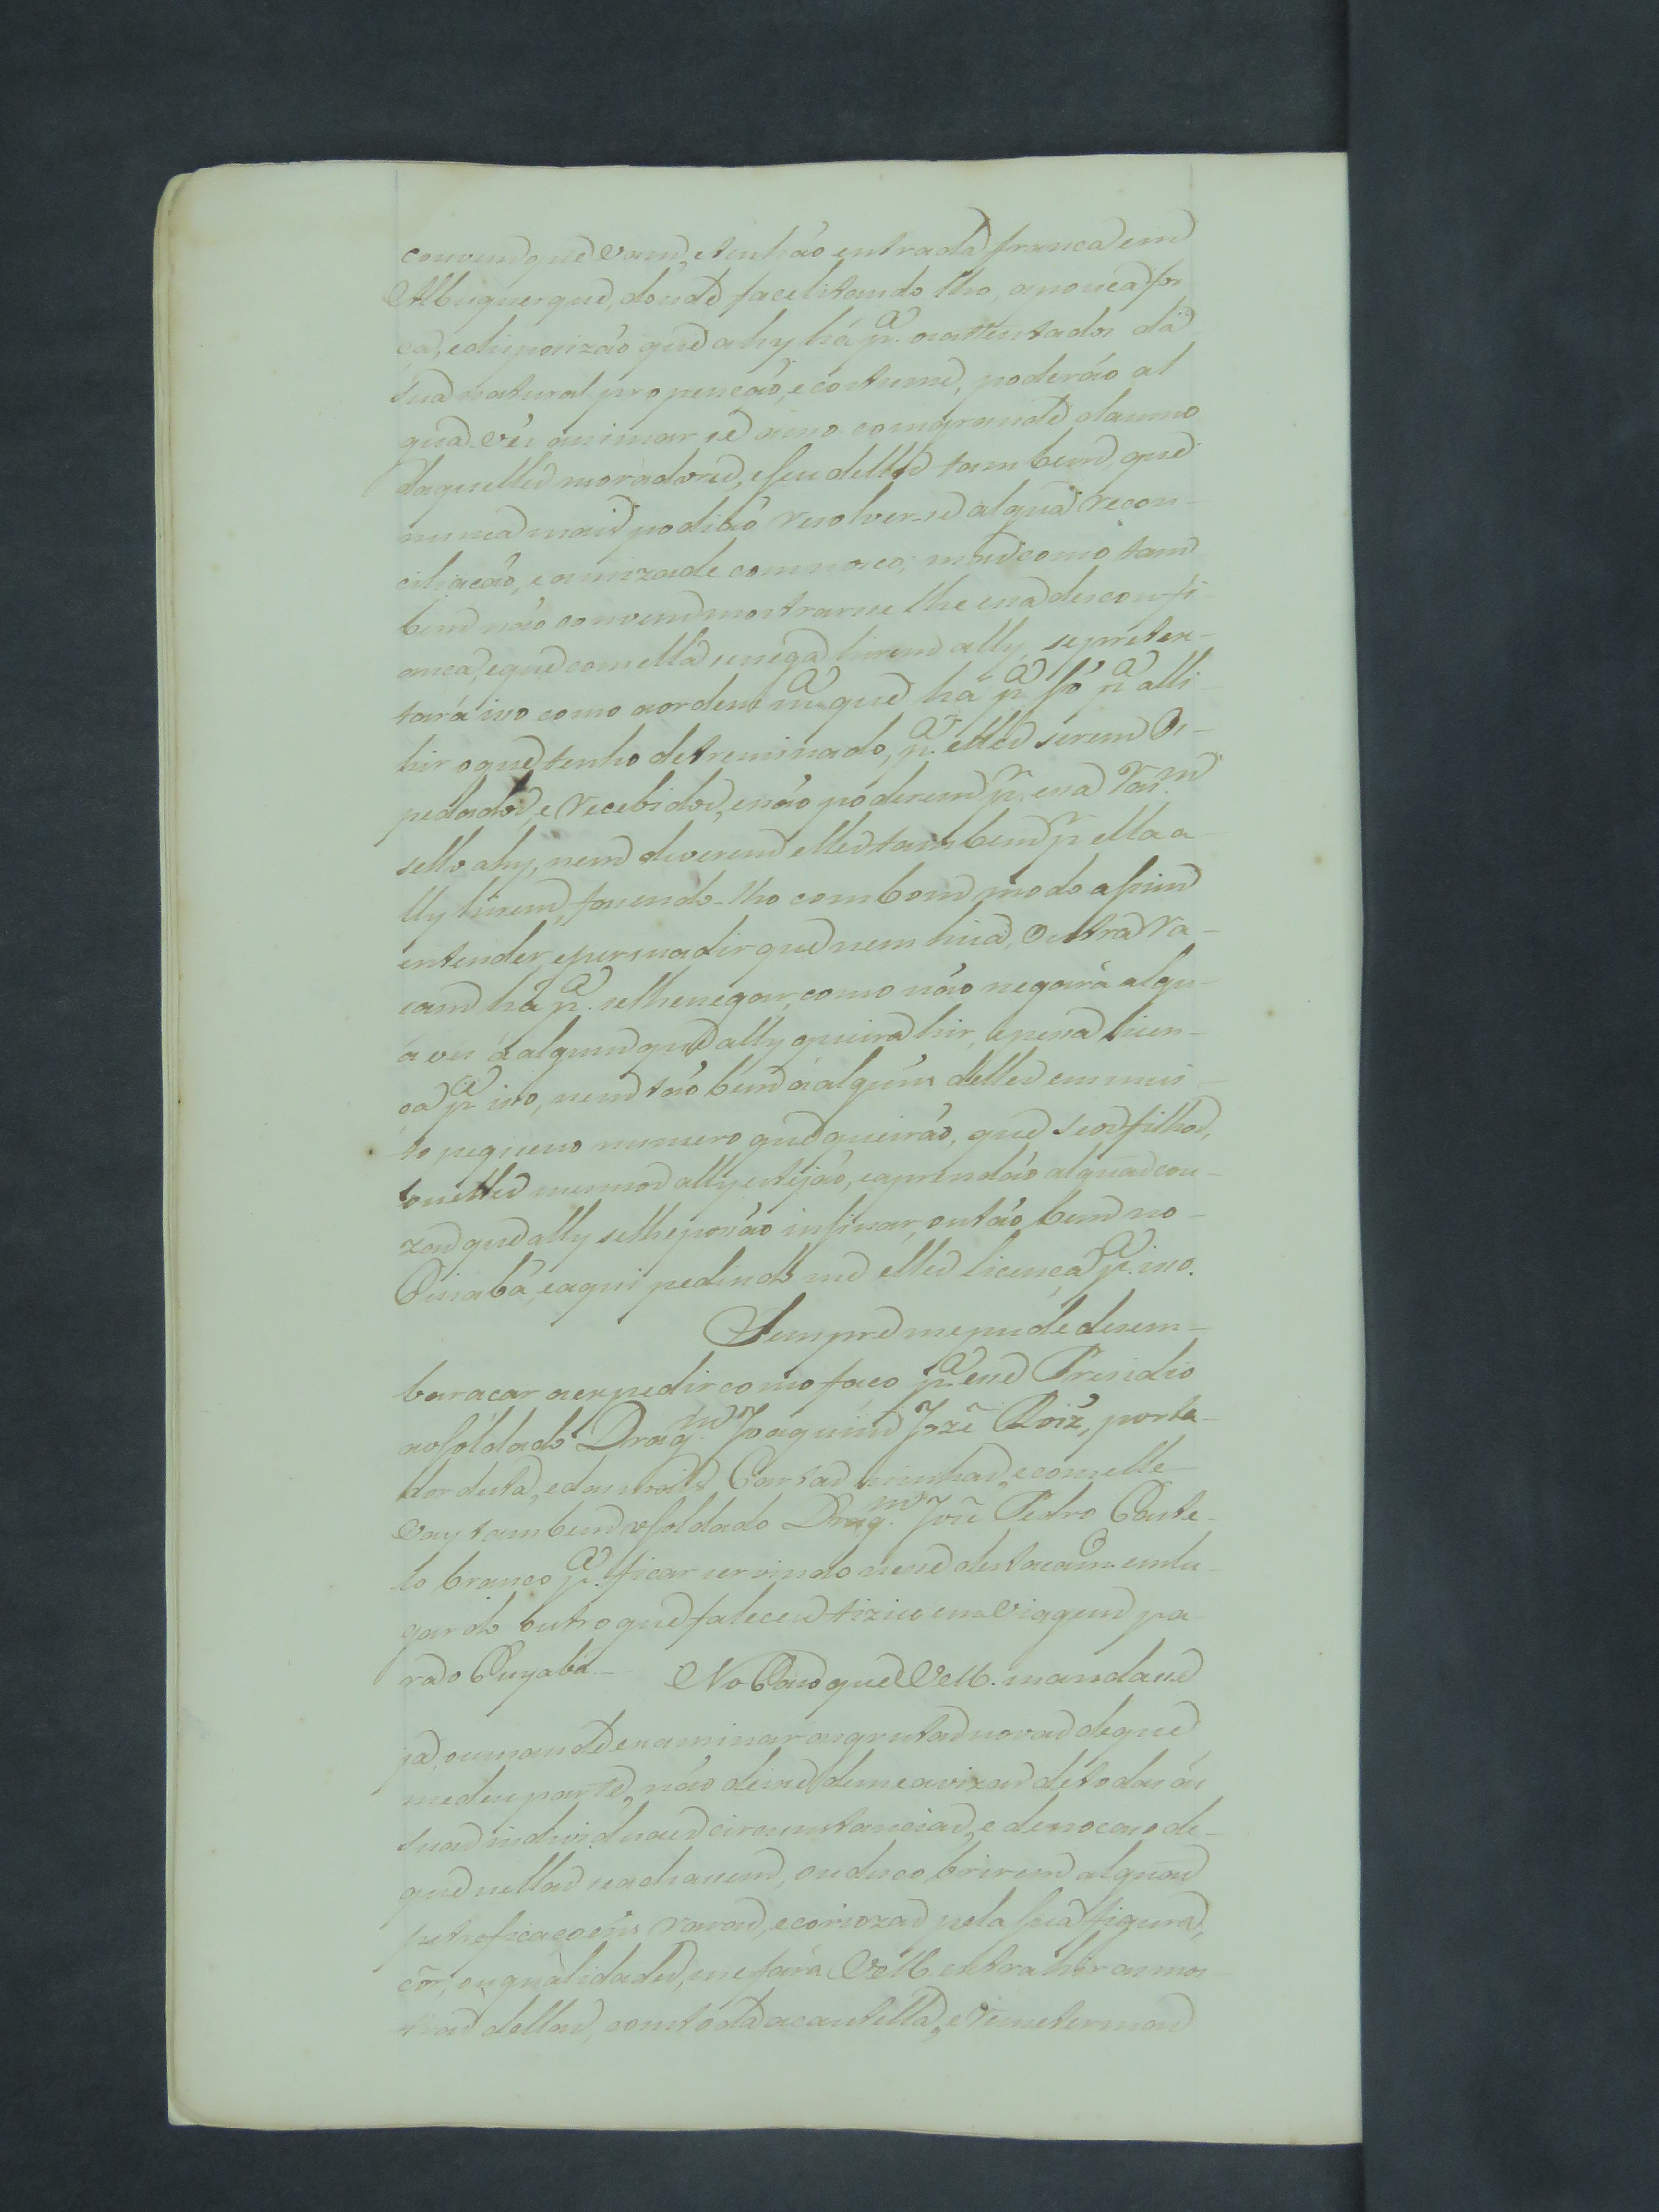 convem que vam, e tenháo entrada franca em
Albuquerque, donde facelitando lho, a pouca for
ca, e dispozizáo que ahy há p.ª os attentados da
sua natural propençáo, e costume, poderáo al
gua véz animar se a iso com grande damno
daquelles moradores, e seu delles tambem, que
nunca mais podiáo resolver-se algua recon-
ciliacáo, e amizade comnosco; mas como tam
bem náo convem mostrarse lhe essa desconfi
anca, e que com ella se nega hirem ally, se pretex-
tará iso como a ordem m.ª que há p.ª só p.ª alli
hir o que tenho detreminado, p.ª elles serem Os-
pedados, e recebidos, e náo poderem p.r essa Raz.m
sello ahy, nem deverem elles tambem p.r ella a-
lly hirem, fazendo-lho com bom modo assim
entender, e persuadir que nem hua, Outra Ra-
zam há p.ª se lhe negar, como náo negará algu-
a vez a algum que ally queira hir, e pessa licen-
ca p.ª iso, nem táo bem a alguns delles em mui-
to pequeno numero que queiráo, que seos filhos,
ou elles mesmos ally estejáo, e aprendáo alguas cou-
zas que ally se lhe posáo insinar, ou táo bem no-
Cuiabá, e aqui pedindo me elles licença p.ª iso.
Sempre me pude desem-
baracar a expedir como faco p.ª esse Presidio
ao soldado Drag.m Joaquim Jozé Roiz, porta-
dor desta, e das mais Cartas minhas, e com elle
vay tambem o soldado Drag.m José Pedro Caste-
lo branco p.ª ficar servindo nese destacam.o em lu-
gar do outro que faleceu tizico em Viagem pa-
ra o Cuyabá. — No Cazo que VM. mandase
ja, ou mande examinar as grutas novas de que
me deu parte, náo deixe de me avizar de todas as
suas individuaes circunstancias, e de no cazo de-
que nellas se achassem, ou descobrirem alguas
petreficacoéns raras, e coriozas pela sua figura,
cor, ou qualidades, me fará VM. extrahir as mos-
tras dellas, com toda a cautella, e remeter mas